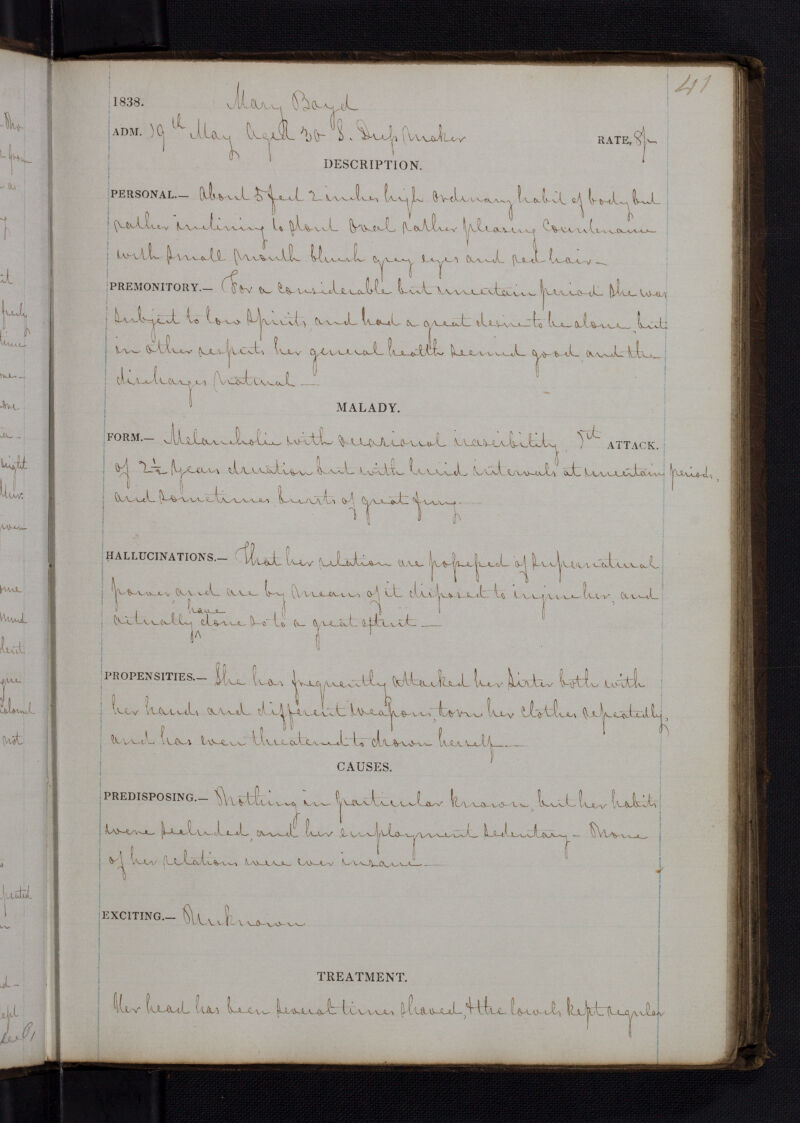 41
1838. Mary Boyd
ADM. 19th May Aged 30 S. Maker RATE, 8/-
DESCRIPTION.
PERSONAL.— About 5 feet 2 inches high ordinary habit of body but
rather inclining to stout oval rather pleasing Countenance
with small mouth bluish grey eyes and red hair—
PREMONITORY.— For a considerable but uncertain period she was
subject to low spirits, and had a great desire to be alone, but
in other respects her general health seemed good and the
discharges natural—
MALADY.
FORM.— Melancholia with occasional irascibility 1st ATTACK.
of 2½ years duration but with lucid intervals at uncertain periods,
and sometimes bursts of great fury.
HALLUCINATIONS.— That her relation are possessed of supernatural
power and are by means of it disposed to injure her, and
actually have done so to a great extent—
PROPENSITIES.— She has frequently attacked her sister both with
her hands and different weapons, torn her clothes repeatedly,
and has even threatened to drown herself—
CAUSES.
PREDISPOSING.— Nothing in particular known, but her habits
were secluded, and her employment sedentary— None
of her relations were ever insane—
EXCITING.— Unknown
TREATMENT.
Her head has been several times shaved, & the bowels kept regular